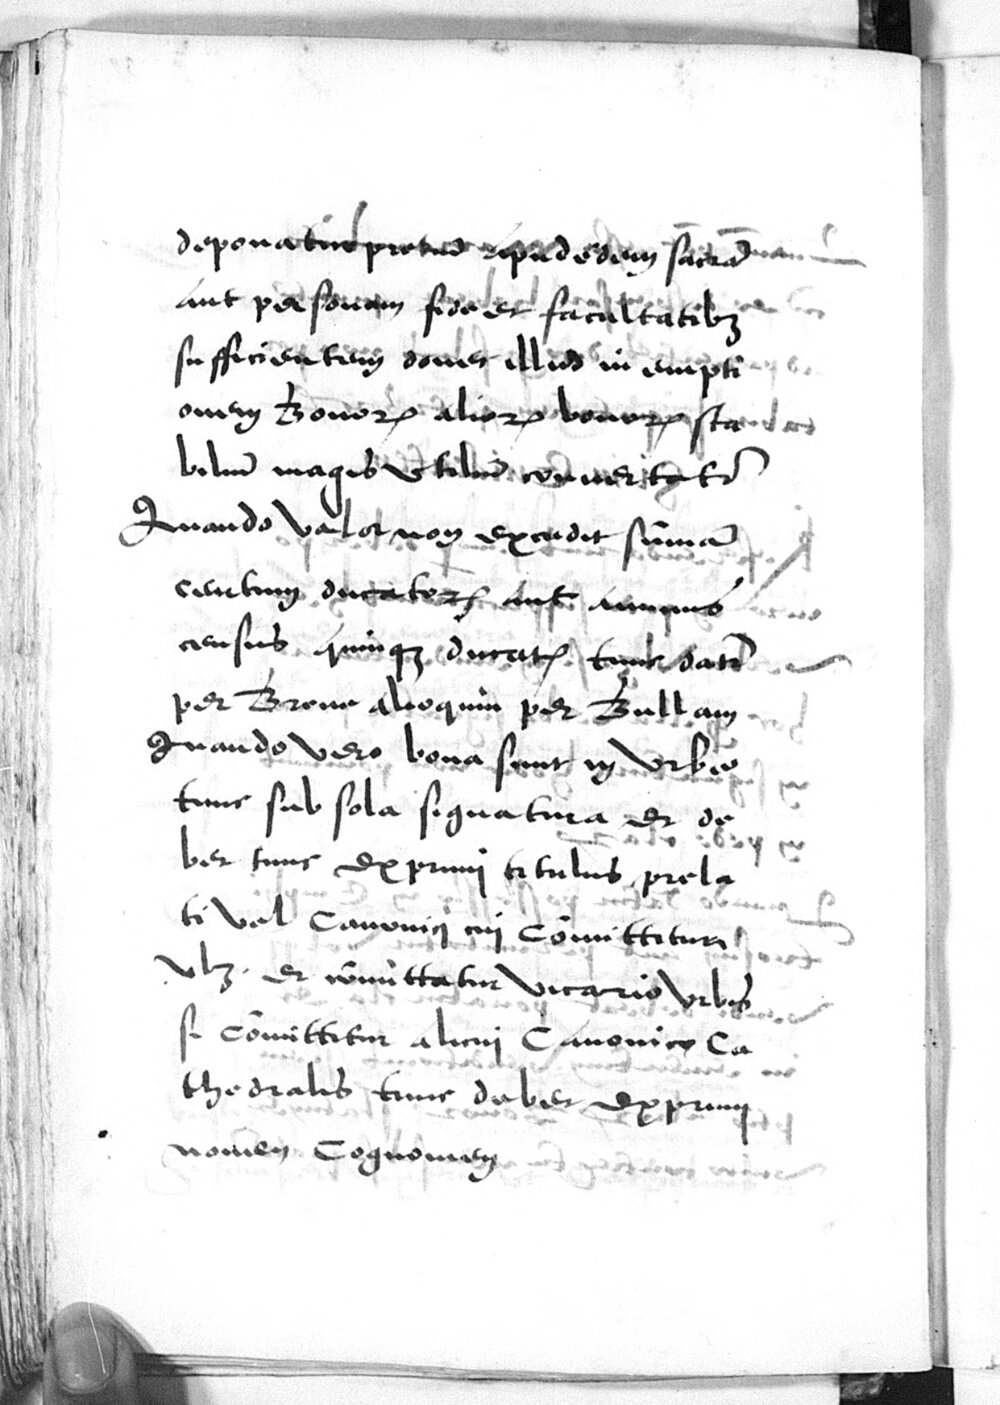 deponatur pretiū apud edem sacrā
aut personam fide et facultatibꝫ
sufficientem donec illud in empti
onem Bonoꝝ alioꝝ bonoꝝ sta
biliū magis utiliū conuertatr
Quando valor non excedit sūmā
centum ducatoꝝ aut annuus
census quinqꝫ ducatoꝝ tunc datr
per Breue alioquin per Bullam
Quando vero bona sunt in Vrbe
tunc sub sola signatura et de
bet tunc exprimi titulus prela
ti vel Canonici cui Cōmittitur
vlꝫ. et cōmittatur Vicario Vrbis
si Cōmittitur alicui Canonico Ca
thedralis tunc debet exprimi
nomen Cognomen